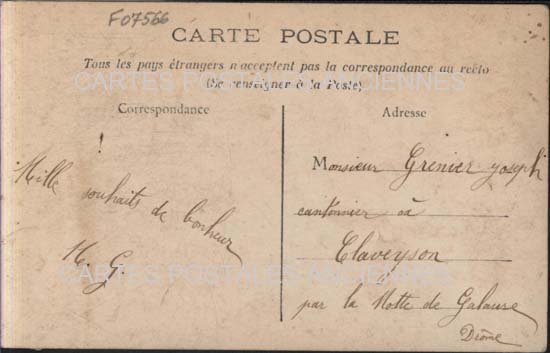 F07566
CARTE POSTALE
Tous les pays étrangers n'acceptent pas la correspondance au recto
(Se renseigner à la Poste)
CARTES POSTALES ANCIENNES
Correspondance
Adresse
Mille souhaits de bonheur
H. G
Monsieur Grenier Joseph
cantonnier à
Claveyson
par la Motte de Galaure
Drôme
CARTES POSTALES ANCIENNES